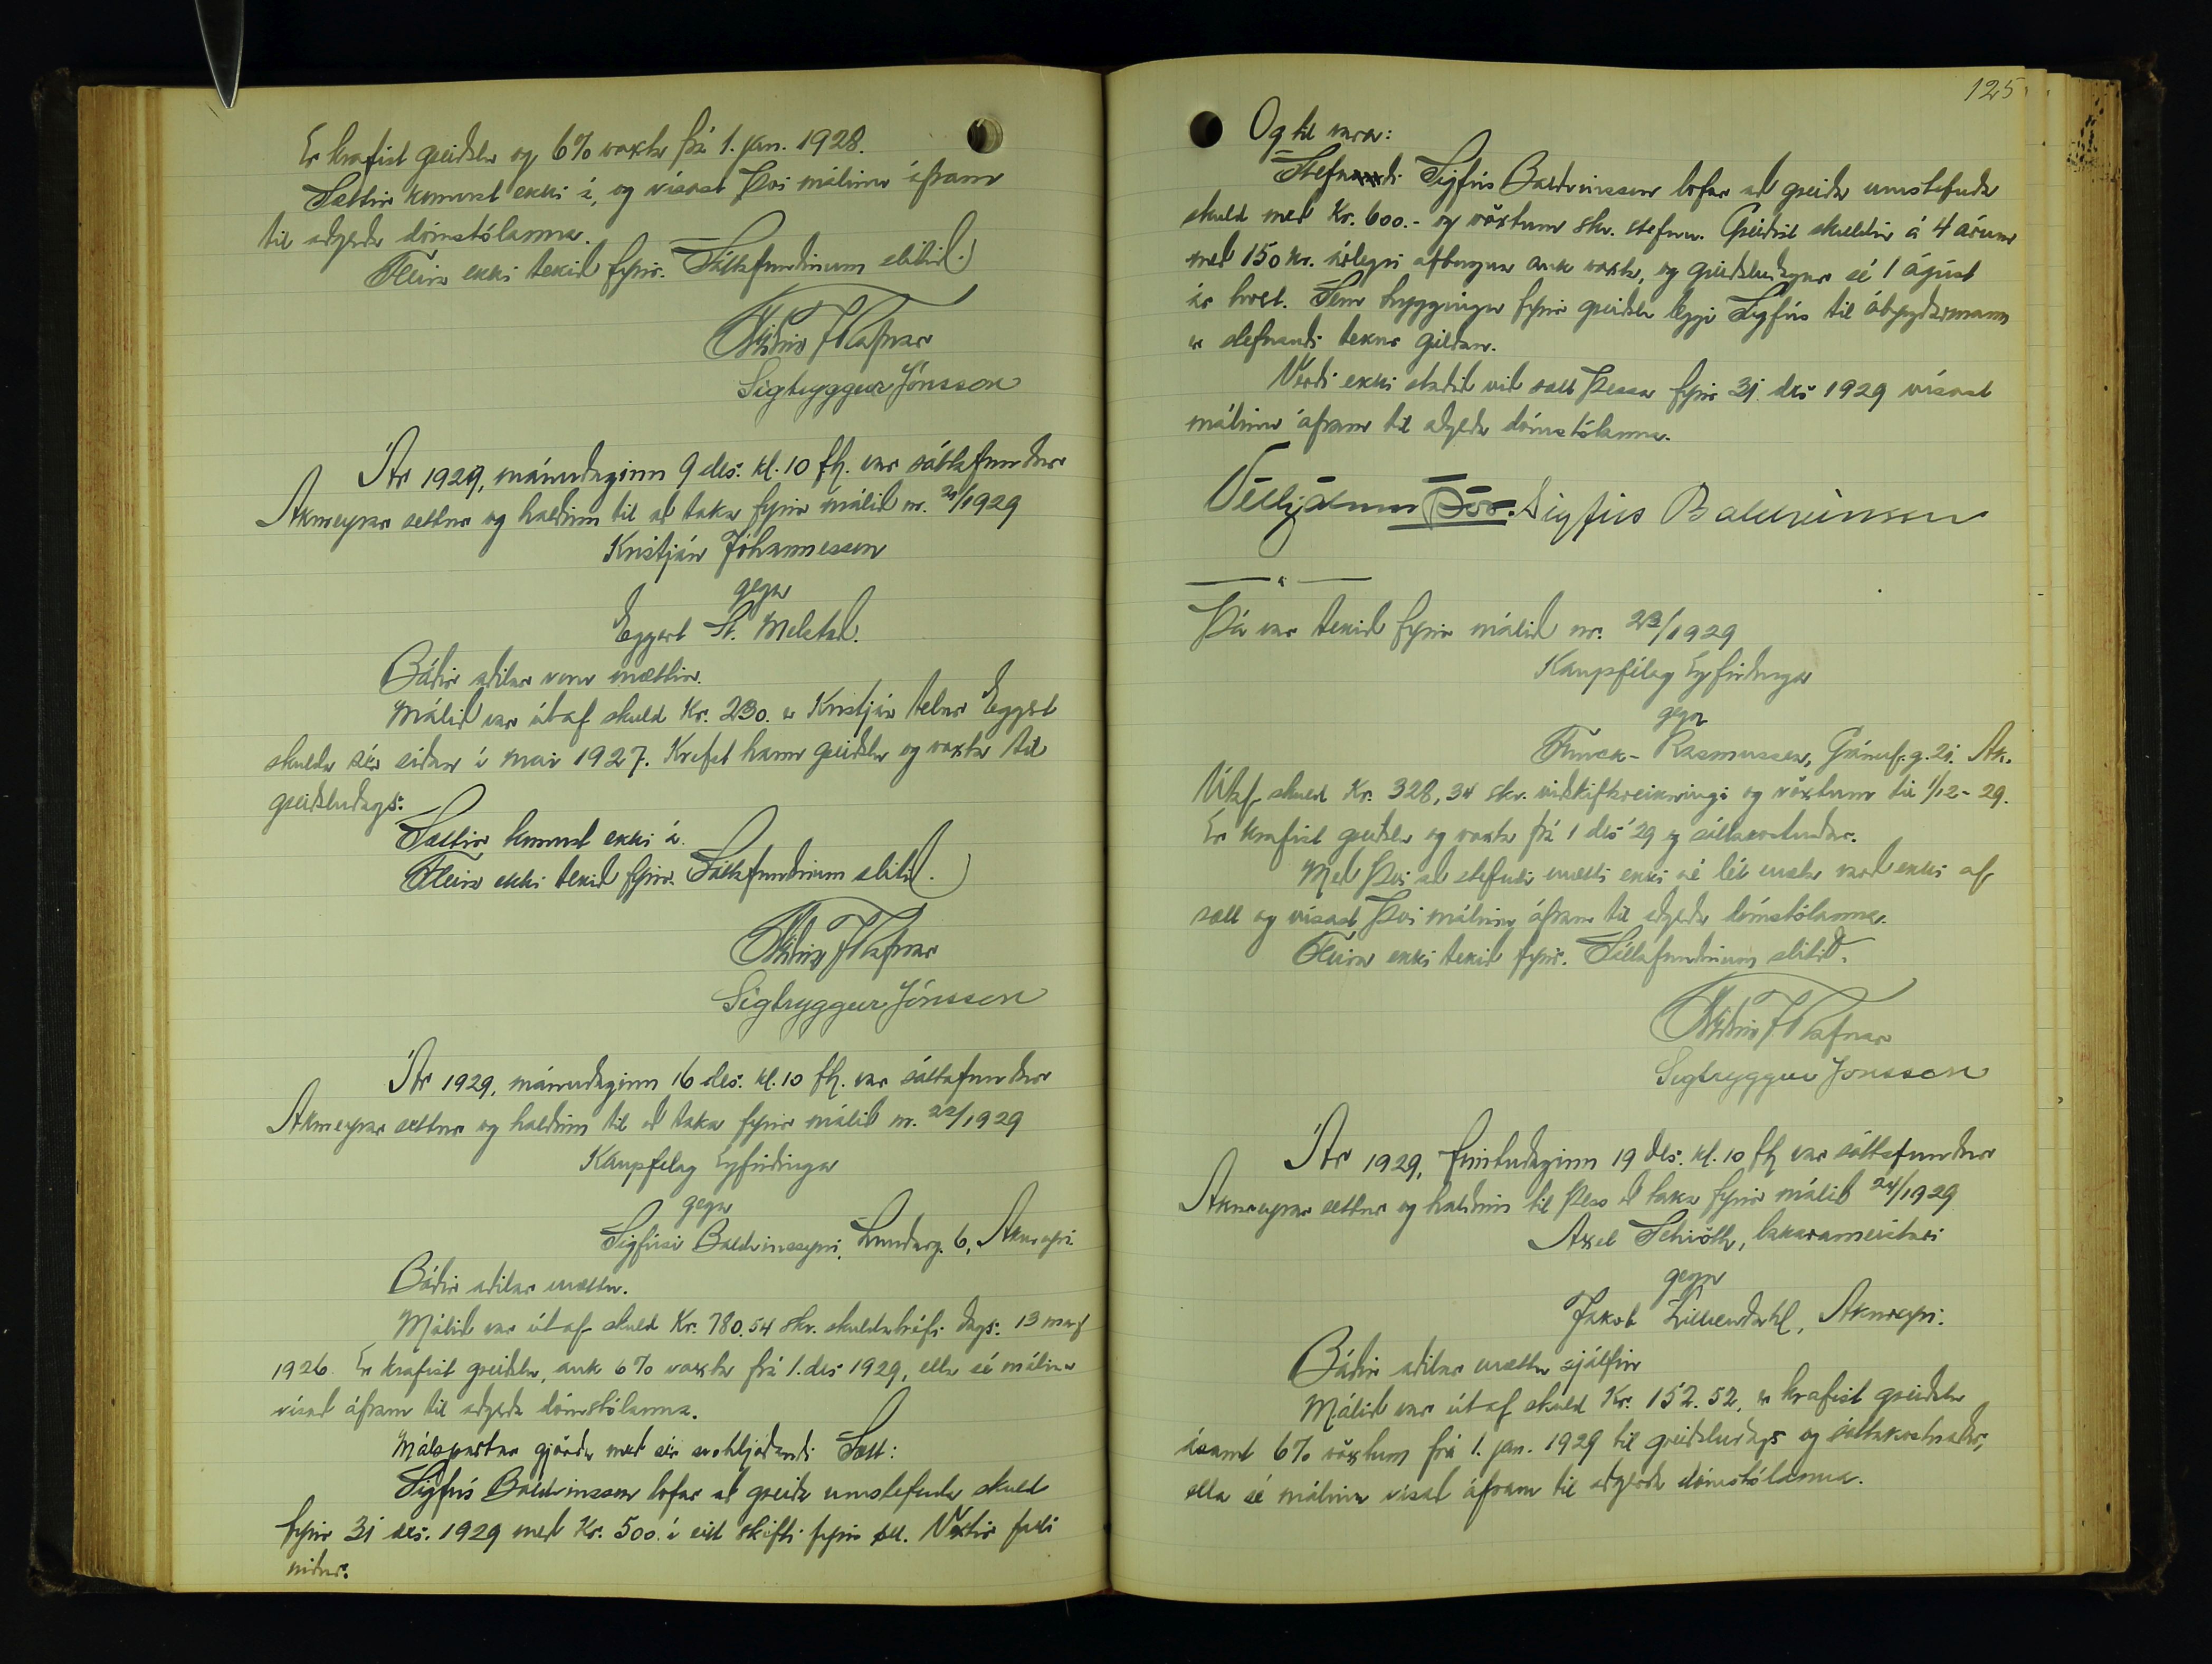 Er krafist greiðslu og 6% vaxta frá 1. jan. 1928.
Sættir komust ekki á, og vísast því málinu áfram
til aðgerða dómstólanna.
Fleira ekki tekið fyrir. Sáttafundinum slitið.
Friðrik J Rafnar
Sigtryggur Jónsson
Ár 1929, mánudaginn 9 des: kl. 10 fh. var sáttafundur
Akureyrar settur og haldinn til að taka fyrir málið nr. 21/1929
Kristján Jóhannesson
gegn
Eggert St. Melstað.
Báðir aðilar voru mættir.
Málið var út af skuld Kr. 230. er Kristján telur Eggert
skulda sér síðan í maí 1927. Krefst hann greiðslu og vaxta til
greiðsludags:
Sættir komust ekki á.
Fleira ekki tekið fyrir. Sáttafundinum slitið.
Friðrik J Rafnar
Sigtryggur Jónsson
Ár 1929, mánudaginn 16 des: kl. 10 fh. var sáttafundur
Akureyrar settur og haldinn til að taka fyrir málið nr. 22/1929
Kaupfélag Eyfirðinga
gegn
Sigfúsi Baldvinssyni, Lundarg. 6, Akureyri.
Báðir aðilar mættu.
Málið var út af skuld Kr. 780.54 skv. skuldabréfi dags: 13 maí
1926. Er krafist greiðslu, auk 6% vaxta frá 1. des 1929, ella sé málinu
vísað áfram til aðgerða dómstólanna.
Málspartar gjörðu með sér svohljóðandi Sætt:
Sigfús Baldvinsson lofar að greiða umstefnda skuld
fyrir 31 des: 1929 með Kr. 500. í eitt skifti fyrir öll. Vextir falli
niður.
125.
Og til vara:
Stefndi Sigfús Baldvinsson lofar að greiða umstefnda
skuld með Kr. 600.- og vöxtum skv. stefnu. Greiðist skuldin á 4 árum
með 150 kr. árlegri afborgun auk vaxta, og greiðsludagur sé 1 ágúst
ár hvert. Sem tryggingu fyrir greiðslu leggi Sigfús til ábyrgðarmann
er stefnandi tekur gildan.
Verði ekki staðið við sætt þessa fyrir 31. des 1929 vísast
málinu áfram til aðgerða dómstólanna.
Vilhjálmur Þór. Sigfús Baldvinsson
Þá var tekið fyrir málið nr. 23/1929
Kaupfélag Eyfirðinga
gegn
Funck-Rasmussen, Gránuf.g. 21. Ak.
Útaf skuld Kr. 328,34 skv. viðskiftareikningi og vöxtum til 1/12-29.
Er krafist greiðslu og vaxta frá 1 des '29 og sáttakostnaðar.
Með því að stefndi mætti ekki né lét mæta varð ekki af
sætt og vísast því málinu áfram til aðgerða dómstólanna.
Fleira ekki tekið fyrir. Sáttafundinum slitið.
Friðrik J Rafnar
Sigtryggur Jónsson
Ár 1929, fimtudaginn 19 des. kl. 10 fh var sáttafundur
Akureyrar settur og haldinn til þess að taka fyrir málið 24/1929
Axel Schiöth, bakarameistari
gegn
Jakob Lilliendahl, Akureyri.
Báðir aðilar mættu sjálfir
Málið var út af skuld Kr. 152.52. er krafist greiðslu
ásamt 6% vöxtum frá 1. jan. 1929 til greiðsludags og sáttakostnaðar,
ella sé málinu vísað áfram til aðgerða dómstólanna.